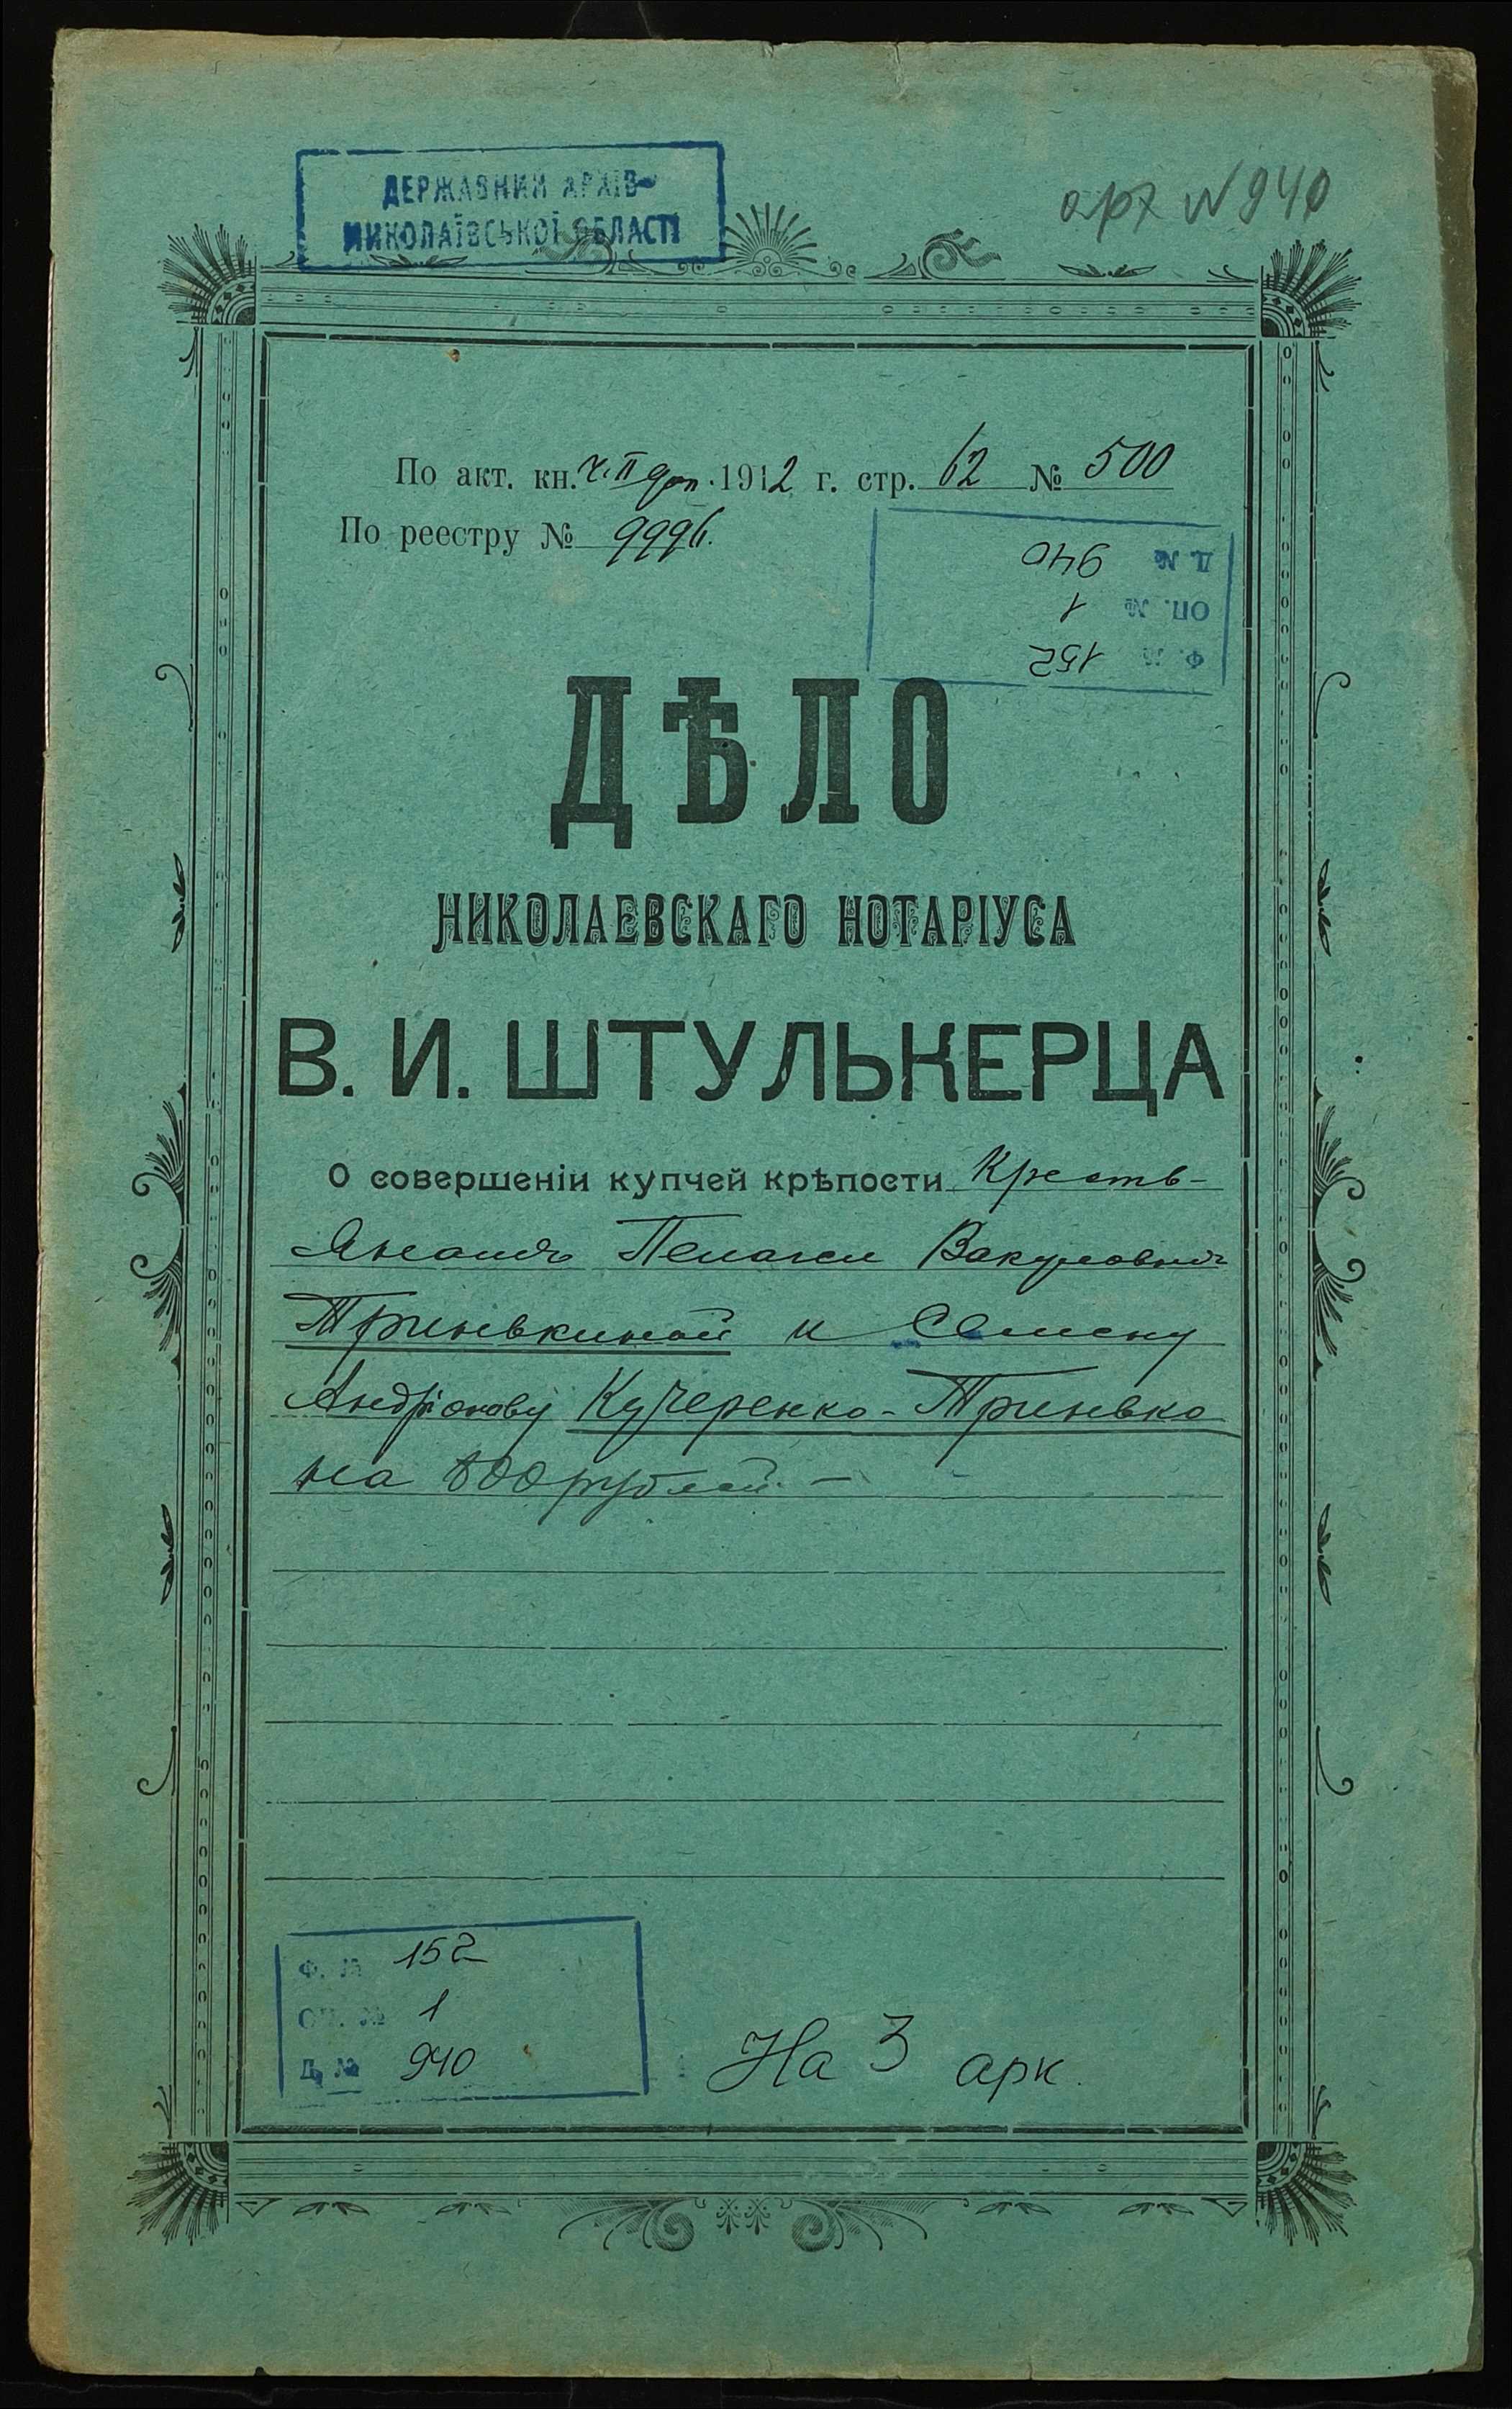 ДЕРЖАВНИЙ АРХІВ
МИКОЛАЇВСЬКОЇ ОБЛАСТІ
арх N 940
По акт. кн. ч. II доп. 1912 г. стр. 62 № 500
По реестру № 9996.
Д. № 940
ОП. № 1
Ф. № 152
ДѢЛО
НИКОЛАЕВСКАГО НОТАРІУСА
В. И. ШТУЛЬКЕРЦА
О совершеніи купчей крѣпости Кресть-
янамъ Пелагеи Вакуловнѣ
Тринькиной и Семену
Андріянову Кучеренко-Тринько
на 800 рублей. —
Ф. № 152
ОП. № 1
Д. № 940
На 3 арк.